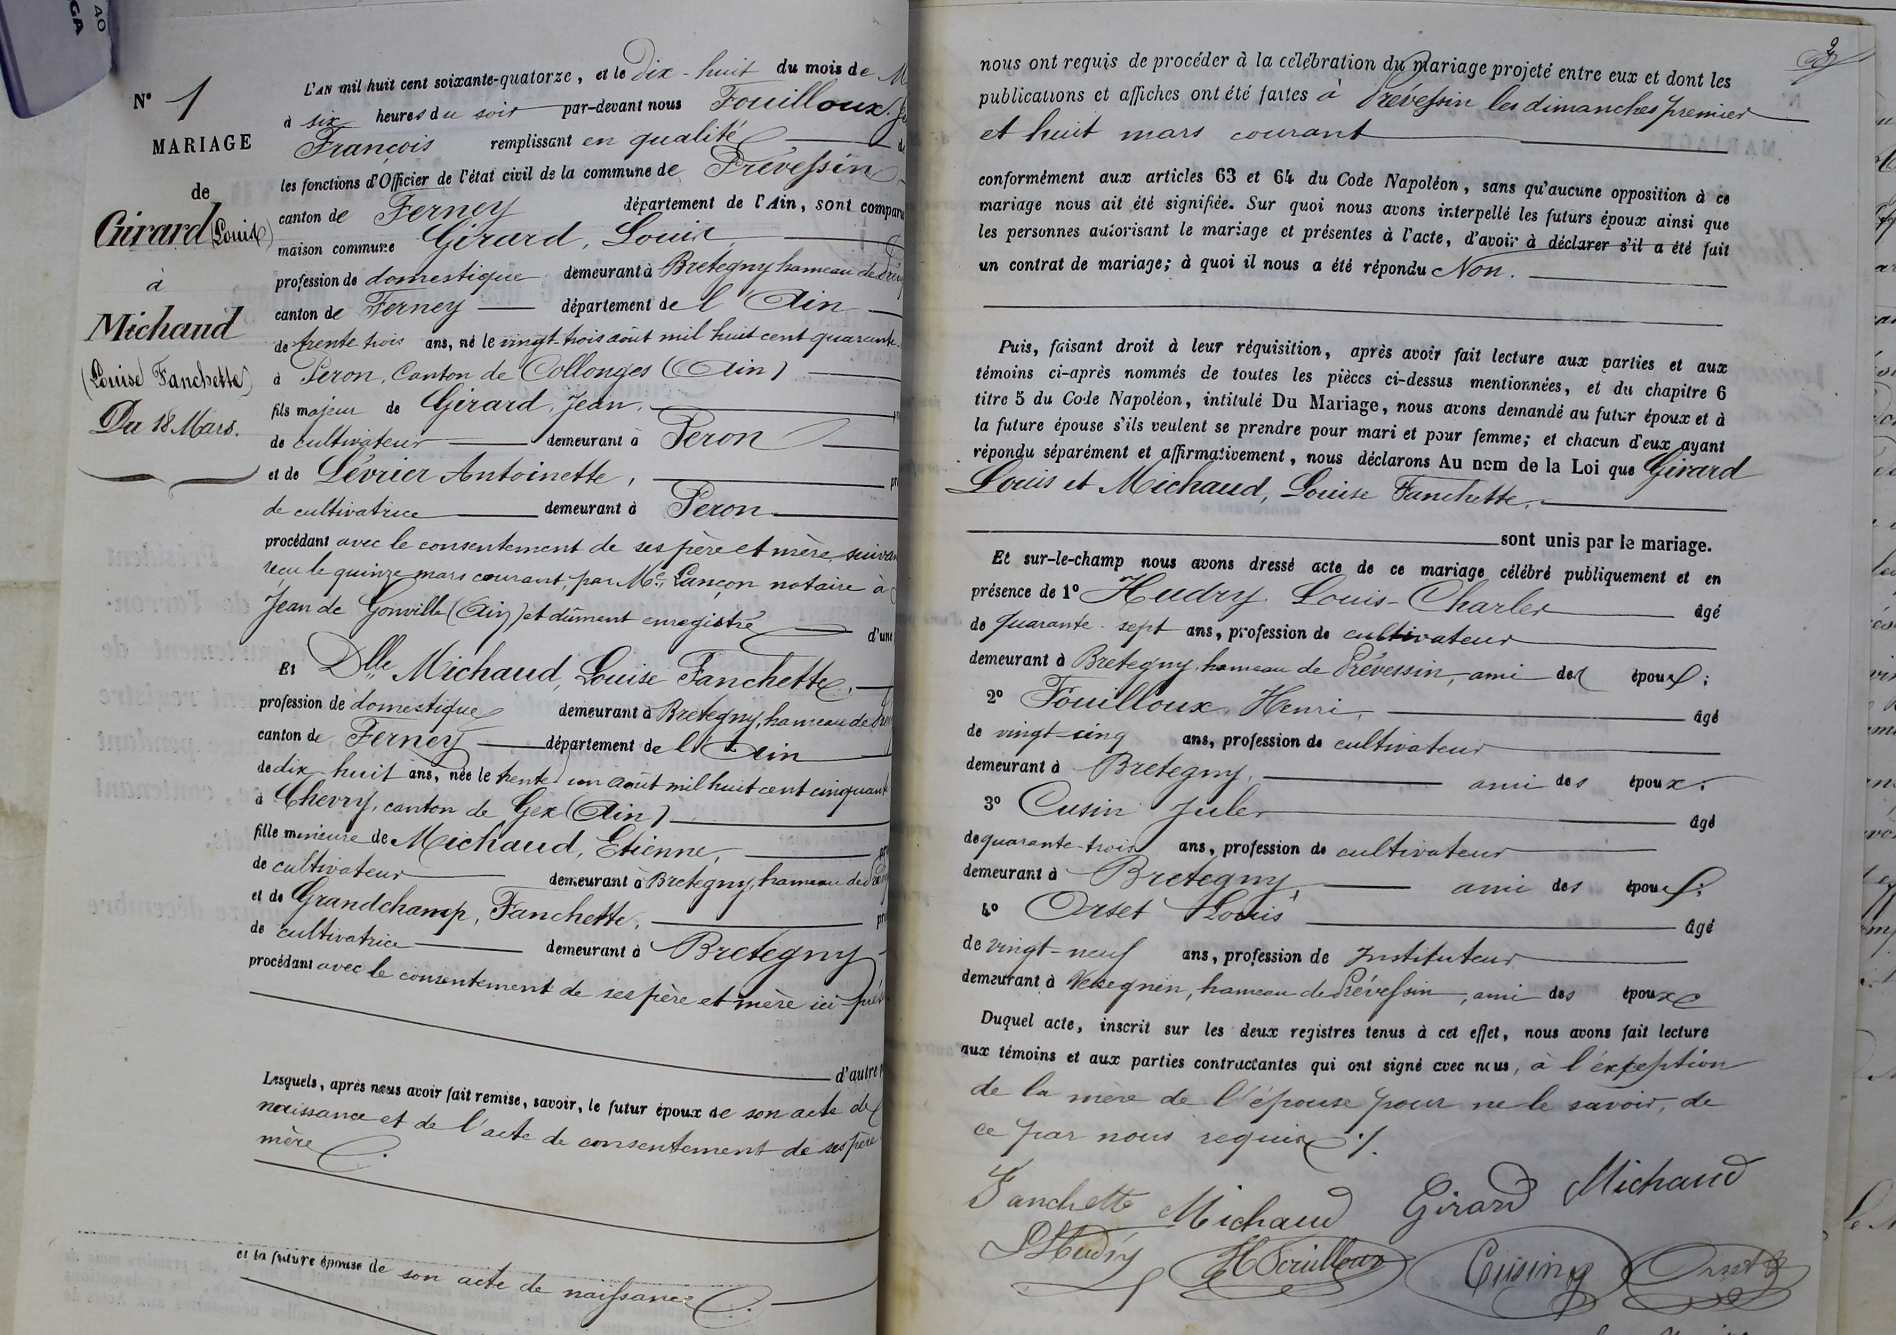 N° 1
MARIAGE
de
Girard (Louis)
à
Michaud
(Louise Fanchette)
Du 18 Mars.
L'AN mil huit cent soixante-quatorze, et le dix-huit du mois de M
à six heures du soir par-devant nous Fouilloux, J
François remplissant en qualité d
les fonctions d'Officier de l'état civil de la commune de Prévessin
canton de Ferney département de l'Ain, sont compar
maison commune Girard, Louis,
profession de domestique demeurant à Bretegny hameau de Prév
canton de Ferney département de l'Ain
de trente trois ans, né le vingt-trois août mil huit cent quarante
à Peron, Canton de Collonges (Ain)
fils majeur de Girard, Jean,
de cultivateur demeurant à Peron
et de Lévrier Antoinette, pr
de cultivatrice demeurant à Peron
procédant avec le consentement de ses père et mère, suivan
reçu le quinze mars courant, par Me. Lançon notaire à
Jean de Gonville (Ain) et dûment enregistré d'une
Et Dlle Michaud, Louise Fanchette,
profession de domestique demeurant à Bretegny, hameau de Prév
canton de Ferney département de l'Ain
de dix huit ans, née le trente un août mil huit cent cinquant
à Chevry, canton de Gex (Ain)
fille mineure de Michaud, Etienne, pr
de cultivateur demeurant à Bretegny, hameau de Prév
et de Grandchamp, Fanchette, pr
de cultivatrice demeurant à Bretegny
procédant avec le consentement de ses père et mère ici prés
d'autre p
Lesquels, après nous avoir fait remise, savoir, le futur époux de son acte de
naissance et de l'acte de consentement de ses père
mère.
et la future épouse de son acte de naissance.
nous ont requis de procéder à la célébration du mariage projeté entre eux et dont les
publications et affiches ont été faites à Prévessin les dimanches premier
et huit mars courant
conformément aux articles 63 et 64 du Code Napoléon, sans qu'aucune opposition à ce
mariage nous ait été signifiée. Sur quoi nous avons interpellé les futurs époux ainsi que
les personnes autorisant le mariage et présentes à l'acte, d'avoir à déclarer s'il a été fait
un contrat de mariage; à quoi il nous a été répondu Non.
Puis, faisant droit à leur réquisition, après avoir fait lecture aux parties et aux
témoins ci-après nommés de toutes les pièces ci-dessus mentionnées, et du chapitre 6
titre 5 du Code Napoléon, intitulé Du Mariage, nous avons demandé au futur époux et à
la future épouse s'ils veulent se prendre pour mari et pour femme; et chacun d'eux ayant
répondu séparément et affirmativement, nous déclarons Au nom de la Loi que Girard
Louis et Michaud, Louise Fanchette.
sont unis par le mariage.
Et sur-le-champ nous avons dressé acte de ce mariage célébré publiquement et en
présence de 1° Hudry Louis-Charles âgé
de quarante-sept ans, profession de cultivateur
demeurant à Bretegny, hameau de Prévessin, ami des époux;
2° Fouilloux, Henri, âgé
de vingt-cinq ans, profession de cultivateur
demeurant à Bretegny, ami des époux.
3° Cusin Jules âgé
de quarante-trois ans, profession de cultivateur
demeurant à Bretegny, ami des époux;
4° Orset Louis âgé
de vingt-neuf ans, profession de Instituteur
demeurant à Vesegnin, hameau de Prévessin, ami des époux
Duquel acte, inscrit sur les deux registres tenus à cet effet, nous avons fait lecture
aux témoins et aux parties contractantes qui ont signé avec nous, à l'exception
de la mère de l'épouse pour ne le savoir, de
ce par nous requise ./.
Fanchette Michaud Girard Michaud
L Hudry H Fouilloux Cusin Orset